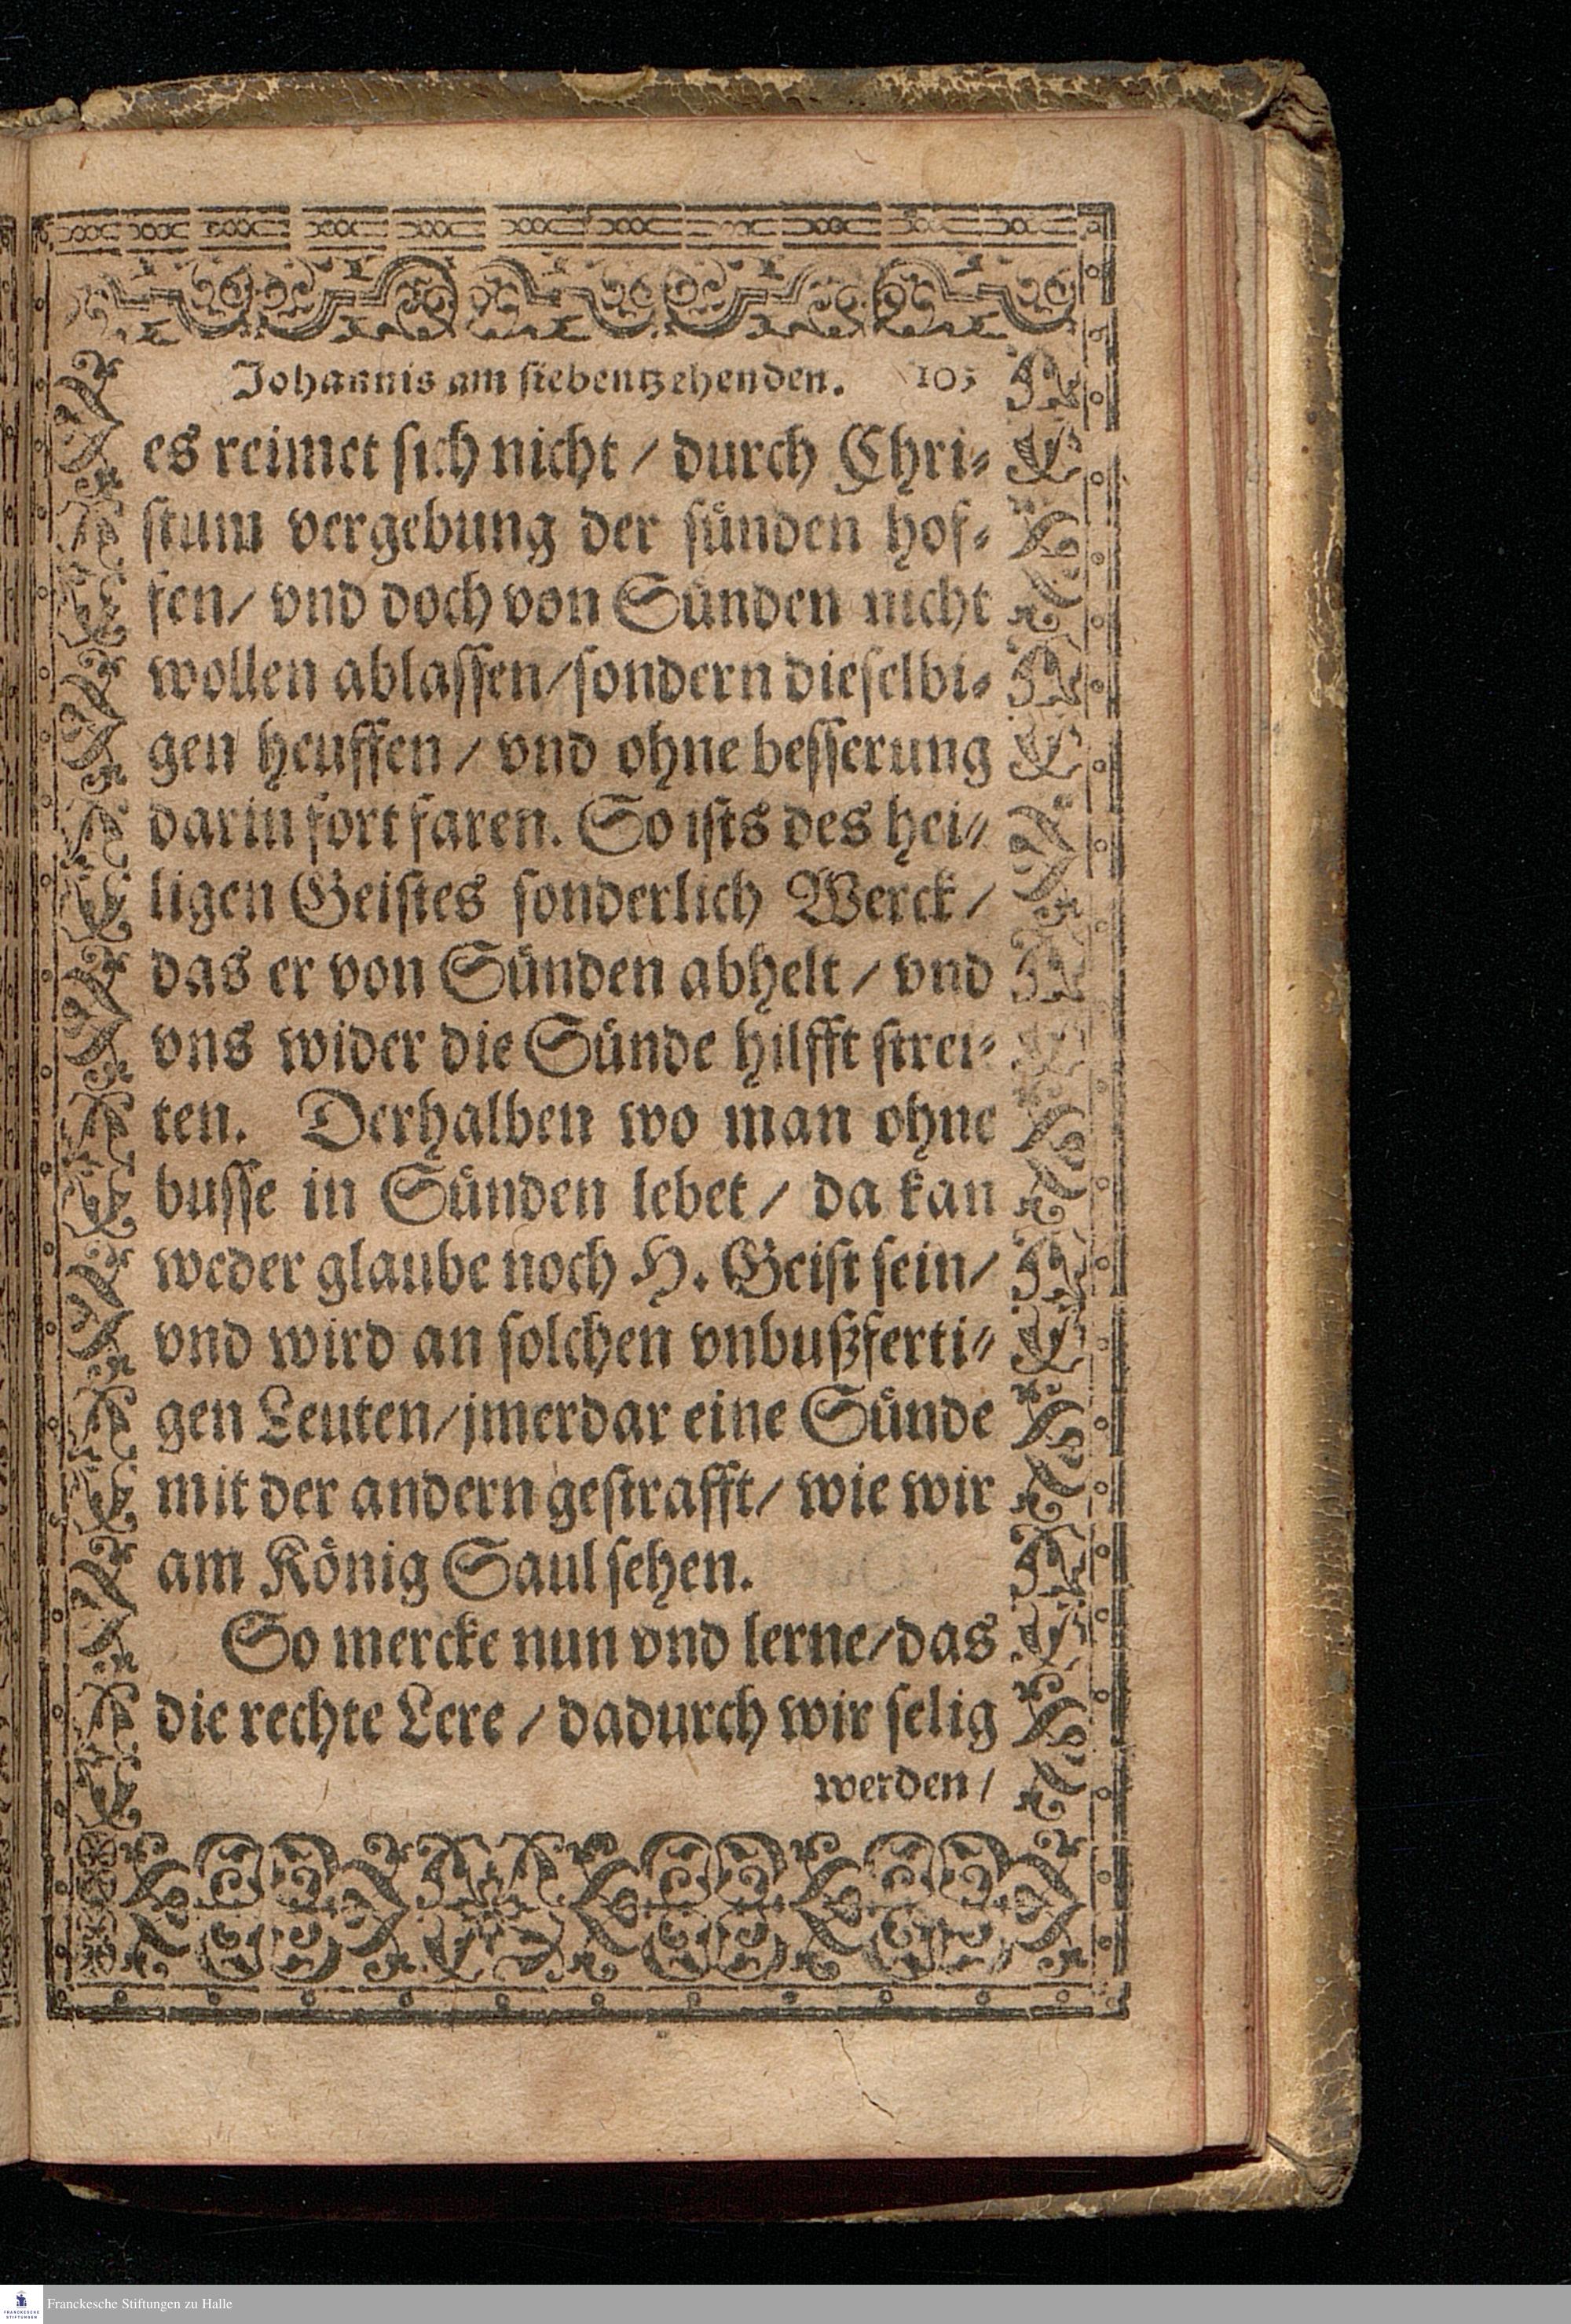 Johannis am siebentzehenden. 103
es reimet sich nicht / durch Chri⸗
stum vergebung der sünden hof⸗
fen / vnd doch von Sünden nicht
wollen ablassen / sondern dieselbi⸗
gen heuffen / vnd ohne besserung
darin fort faren. So ists des hei⸗
ligen Geistes sonderlich Werck /
das er von Sünden abhelt / vnd
vns wider die Sünde hilfft strei⸗
ten. Derhalben wo man ohne
busse in Sünden lebet / da kan
weder glaube noch H. Geist sein /
vnd wird an solchen vnbußferti⸗
gen Leuten / jmerdar eine Sünde
mit der andern gestrafft / wie wir
am König Saul sehen.
So mercke nun vnd lerne / das
die rechte Lere / dadurch wir selig
werden /
Franckesche Stiftungen zu Halle
FRANCKESCHE
STIFTUNGEN